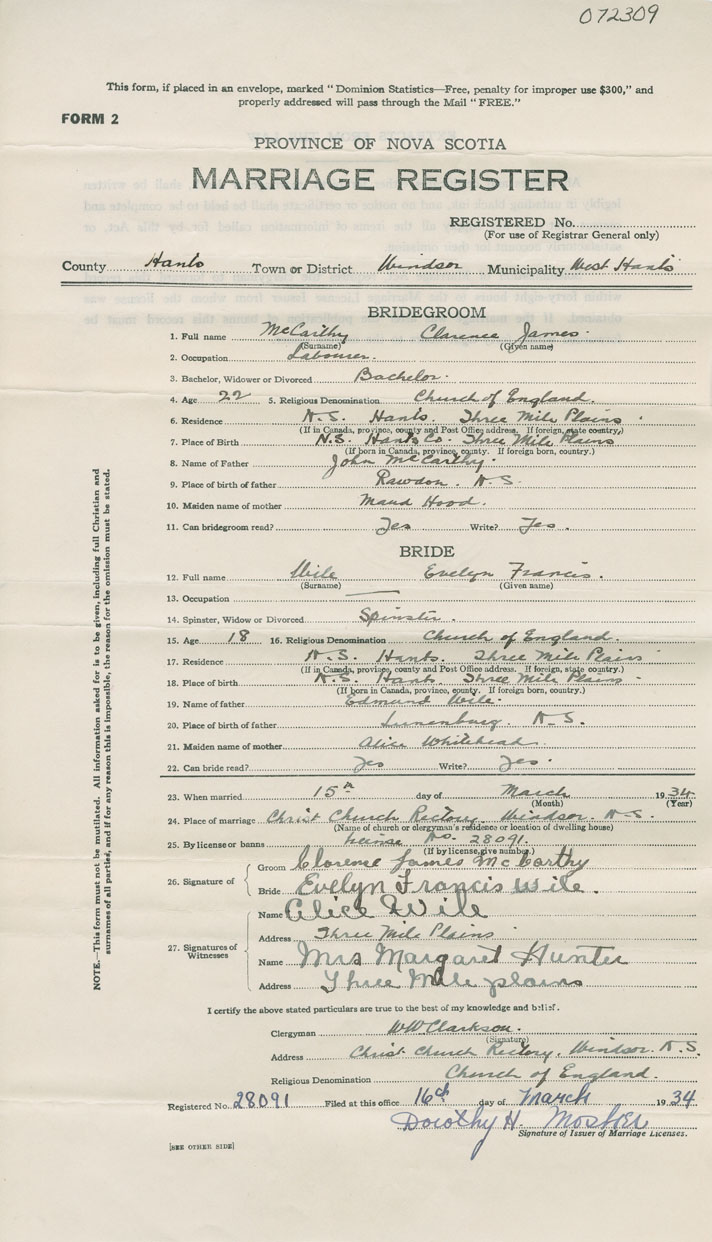 072309
This form, if placed in an envelope, marked "Dominion Statistics—Free, penalty for improper use $300," and
properly addressed will pass through the Mail "FREE."
FORM 2
PROVINCE OF NOVA SCOTIA
MARRIAGE REGISTER
REGISTERED No.
(For use of Registrar General only)
County Hants Town or District Windsor Municipality West Hants
BRIDEGROOM
1. Full name McCarthy Clarence James.
(Surname) (Given name)
2. Occupation Labourer.
3. Bachelor, Widower or Divorced Bachelor.
4. Age 22 5. Religious Denomination Church of England.
6. Residence N.S. Hants. Three Mile Plains.
(If in Canada, province, county and Post Office address. If foreign, state country.)
7. Place of Birth N.S. Hants Co. Three Mile Plains
(If born in Canada, province, county. If foreign born, country.)
8. Name of Father John McCarthy.
9. Place of birth of father Rawdon. N.S.
10. Maiden name of mother Maud Hood.
11. Can bridegroom read? Yes Write? Yes.
BRIDE
12. Full name Wile Evelyn Francis.
(Surname) (Given name)
13. Occupation —
14. Spinster, Widow or Divorced Spinster.
15. Age 18 16. Religious Denomination Church of England.
17. Residence N.S. Hants. Three Mile Plains
(If in Canada, province, county and Post Office address. If foreign, state country.)
18. Place of birth N.S. Hants. Three Mile Plains.
(If born in Canada, province, county. If foreign born, country.)
19. Name of father Edmund Wile.
20. Place of birth of father Lunenburg. N.S.
21. Maiden name of mother Alice Whitehead.
22. Can bride read? Yes Write? Yes.
23. When married 15th day of March 1934
(Month) (Year)
24. Place of marriage Christ Church Rectory. Windsor. N.S.
(Name of church or clergyman's residence or location of dwelling house)
25. By license or banns license No. 28091.
(If by license, give number)
26. Signature of
Groom Clarence James McCarthy
Bride Evelyn Francis Wile.
27. Signatures of Witnesses
Name Alice Wile
Address Three Mile Plains
Name Mrs Margaret Hunter
Address Three Mile plains
I certify the above stated particulars are true to the best of my knowledge and belief.
Clergyman WW Clarkson.
(Signature)
Address Christ Church Rectory. Windsor. N.S.
Religious Denomination Church of England.
Registered No. 28091 Filed at this office 16th day of March 1934
Dorothy H. Mosher
Signature of Issuer of Marriage Licenses.
[SEE OTHER SIDE]
NOTE.—This form must not be mutilated. All information asked for is to be given, including full Christian and
surnames of all parties, and if for any reason this is impossible, the reason for the omission must be stated.